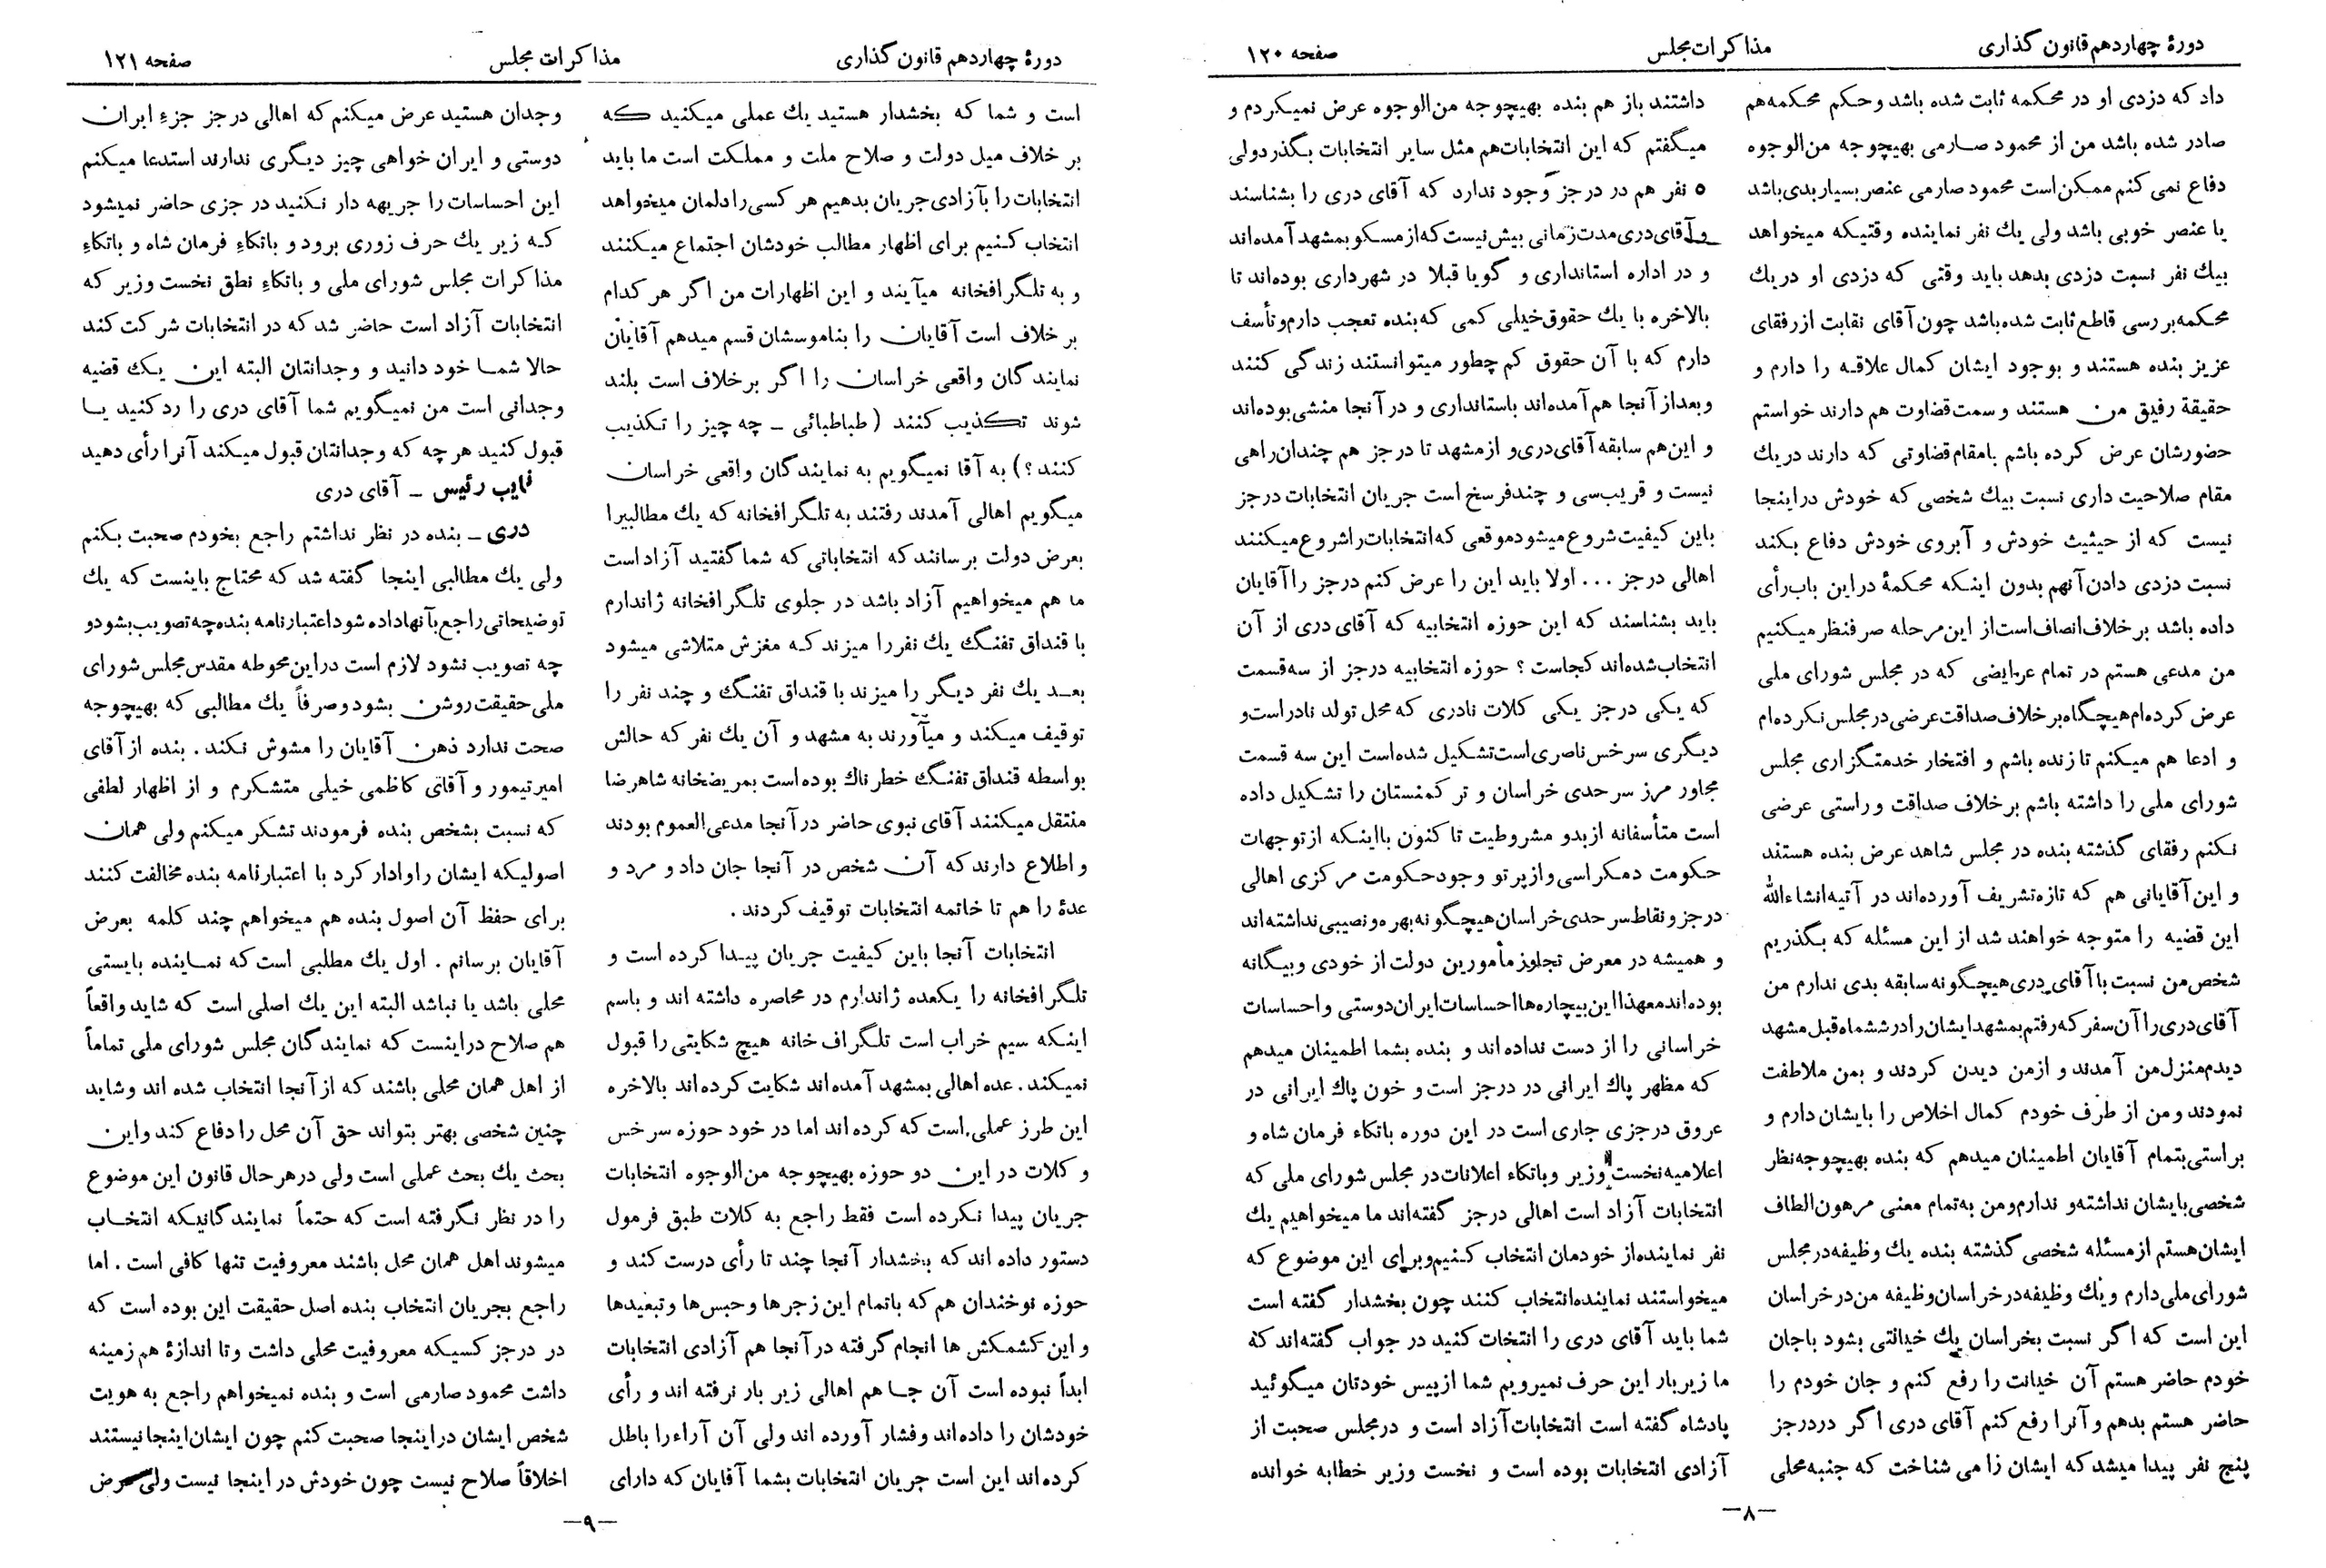 دورهٔ چهاردهم قانون گذاری
مذاکرات مجلس
صفحه ۱۲۰
داد که دزدی او در محکمه ثابت شده باشد وحکم محکمه‌هم
صادر شده باشد من از محمود صارمی بهیچوجه من‌الوجوه
دفاع نمی کنم ممکن‌است محمود صارمی عنصر بسیار بدی‌باشد
یا عنصر خوبی باشد ولی یك نفر نماینده وقتیکه میخواهد
بیك نفر نسبت دزدی بدهد باید وقتی که دزدی او در یك
محکمه‌بررسی قاطع ثابت شده‌باشد چون آقای نقابت ازرفقای
عزیز بنده هستند و بوجود ایشان کمال علاقـه را دارم و
حقیقة رفیق من هستند و سمت قضاوت هم دارند خواستم
حضورشان عرض کرده باشم بامقام قضاوتی که دارند در یك
مقام صلاحیت داری نسبت بیك شخصی که خودش دراینجا
نیست که از حیثیت خودش و آبروی خودش دفاع بکند
نسبت دزدی دادن آنهم بدون اینکه محکمهٔ دراین باب رأی
داده باشد برخلاف انصاف‌است از این‌مرحله صرفنظر میکنیم
من مدعی هستم در تمام عرایضی که در مجلس شورای ملی
عرض کرده‌ام هیچگاه برخلاف صداقت عرضی در مجلس نکرده‌ام
و ادعا هم میکنم تا زنده باشم و افتخار خدمتگزاری مجلس
شورای ملی را داشته باشم برخلاف صداقت و راستی عرضی
نکنم رفقای گذشته بنده در مجلس شاهد عرض بنده هستند
و این آقایانی هم که تازه‌تشریف آورده‌اند در آتیه‌انشاءالله
این قضیه را متوجه خواهند شد از این مسئله که بگذریم
شخص‌من نسبت با آقای دری هیچگونه سابقه بدی ندارم من
آقای دری را آن سفر که رفتم بمشهد ایشان را در ششماه قبل مشهد
دیدم‌منزل من آمدند و از من دیدن کردند و بمن ملاطفت
نمودند و من از طرف خودم کمال اخلاص را بایشان دارم و
براستی بتمام آقایان اطمینان میدهم که بنده بهیچوجه نظر
شخصی‌بایشان نداشته‌و ندارم ومن به‌تمام معنی مرهون الطاف
ایشان هستم از مسئله شخصی گذشته بنده یك وظیفه در مجلس
شورای ملی دارم ویك وظیفه در خراسان وظیفه من در خراسان
این است که اگر نسبت بخراسان یك خیانتی بشود باجان
خودم حاضر هستم آن خیانت را رفع کنم و جان خودم را
حاضر هستم بدهم و آنرا رفع کنم آقای دری اگر دردرجز
پنج نفر پیدا میشد که ایشان را می شناخت که جنبه محلی
داشتند باز هم بنده بهیچوجه من‌الوجوه عرض نمیکردم و
میگفتم که این انتخابات‌هم مثل سایر انتخابات بگذرد ولی
۵ نفر هم در درجز وجود ندارد که آقای دری را بشناسند
و آقای دری مدت زمانی بیش نیست که از مسکو بمشهد آمده‌اند
و در اداره استانداری و گویا قبلا در شهرداری بوده‌اند تا
بالاخره با یك حقوق خیلی کمی که بنده تعجب دارم و تأسف
دارم که با آن حقوق کم چطور میتوانستند زندگی کنند
و بعد از آنجا هم آمده‌اند باستانداری و در آنجا منشی بوده‌اند
و این‌هم سابقه آقای دری و از مشهد تا درجز هم چندان راهی
نیست و قریب‌سی و چند فرسخ است جریان انتخابات درجز
باین کیفیت شروع میشود موقعی که انتخابات را شروع میکنند
اهالی درجز ... اولا باید این را عرض کنم درجز را آقایان
باید بشناسند که این حوزه انتخابیه که آقای دری از آن
انتخاب شده‌اند کجاست ؟ حوزه انتخابیه درجز از سه‌قسمت
که یکی درجز یکی کلات نادری که محل تولد نادر است و
دیگری سرخس ناصری است تشکیل شده‌است این سه قسمت
مجاور مرز سرحدی خراسان و ترکمنستان را تشکیل داده
است متأسفانه از بدو مشروطیت تا کنون بااینکه از توجهات
حکومت دمکراسی و از پرتو وجود حکومت مرکزی اهالی
درجز و نقاط سرحدی خراسان هیچگونه بهره و نصیبی نداشته‌اند
و همیشه در معرض تجاوز مأمورین دولت از خودی و بیگانه
بوده‌اند معهذا این بیچاره‌ها احساسات ایران دوستی و احساسات
خراسانی را از دست نداده اند و بنده بشما اطمینان میدهم
که مظهر پاك ایرانی در درجز است و خون پاك ایرانی در
عروق درجزی جاری است در این دوره باتکاء فرمان شاه و
اعلامیه نخست وزیر و باتکاء اعلانات در مجلس شورای ملی که
انتخابات آزاد است اهالی درجز گفته‌اند ما میخواهیم یك
نفر نماینده از خودمان انتخاب کنیم و برای این موضوع که
میخواستند نماینده انتخاب کنند چون بخشدار گفته است
شما باید آقای دری را انتخات کنید در جواب گفته‌اند که
ما زیر بار این حرف نمیرویم شما از پیس خودتان میگوئید
پادشاه گفته است انتخابات آزاد است و در مجلس صحبت از
آزادی انتخابات بوده است و نخست وزیر خطابه خوانده
—۸—
دورهٔ چهاردهم قانون گذاری
مذاکرات مجلس
صفحه ۱۲۱
است و شما که بخشدار هستید یك عملی میکنید که
برخلاف میل دولت و صلاح ملت و مملکت است ما باید
انتخابات را بآزادی جریان بدهیم هر کسی را دلمان میخواهد
انتخاب کنیم برای اظهار مطالب خودشان اجتماع میکنند
و به تلگرافخانه میآیند و این اظهارات من اگر هر کدام
بر خلاف است آقایان را بناموسشان قسم میدهم آقایان
نمایندگان واقعی خراسان را اگر برخلاف است بلند
شوند تکذیب کنند ( طباطبائی ـ چه چیز را تکذیب
کنند ؟ ) به آقا نمیگویم به نمایندگان واقعی خراسان
میگویم اهالی آمدند رفتند به تلگرافخانه که یك مطالبیرا
بعرض دولت برسانند که انتخاباتی که شما گفتید آزاد است
ما هم میخواهیم آزاد باشد در جلوی تلگرافخانه ژاندارم
با قنداق تفنگ یك نفر را میزند که مغزش متلاشی میشود
بعـد یك نفر دیگر را میزند با قنداق تفنگ و چند نفر را
توقیف میکند و میآورند به مشهد و آن یك نفر که حالش
بواسطه قنداق تفنگ خطرناك بوده است بمریضخانه شاهرضا
منتقل میکنند آقای نبوی حاضر در آنجا مدعی‌العموم بودند
و اطلاع دارند که آن شخص در آنجا جان داد و مرد و
عدهٔ را هم تا خاتمه انتخابات توقیف کردند .
انتخابات آنجا باین کیفیت جریان پیدا کرده است و
تلگرافخانه را یکعده ژاندارم در محاصره داشته اند و باسم
اینکه سیم خراب است تلگراف خانه هیچ شکایتی را قبول
نمیکند . عده اهالی بمشهد آمده‌اند شکایت کرده‌اند بالاخره
این طرز عملی است که کرده اند اما در خود حوزه سرخس
و کلات در این دو حوزه بهیچوجه من‌الوجوه انتخابات
جریان پیدا نکرده است فقط راجع به کلات طبق فرمول
دستور داده اند که بخشدار آنجا چند تا رأی درست کند و
حوزه نوخندان هم که باتمام این زجرها و حبس‌ها و تبعیدها
و این کشمکش ها انجام گرفته در آنجا هم آزادی انتخابات
ابداً نبوده است آن جـا هم اهالی زیر بار نرفته اند و رأی
خودشان را داده‌اند و فشار آورده اند ولی آن آراء را باطل
کرده اند این است جریان انتخابات بشما آقایان که دارای
وجدان هستید عرض میکنم که اهالی درجز جزءِ ایران
دوستی و ایران خواهی چیز دیگری ندارند استدعا میکنم
این احساسات را جریهه دار نکنید درجزی حاضر نمیشود
کـه زیر یك حرف زوری برود و باتکاءِ فرمان شاه و باتکاءِ
مذاکرات مجلس شورای ملی و باتکاءِ نطق نخست وزیر که
انتخابات آزاد است حاضر شد که در انتخابات شرکت کند
حالا شمـا خود دانید و وجدانتان البته این یك قضیه
وجدانی است من نمیگویم شما آقای دری را رد کنید یـا
قبول کنید هر چه که وجدانتان قبول میکند آنرا رأی دهید
نایب رئیس ـ آقای دری
دری ـ بنده در نظر نداشتم راجع بخودم صحبت بکنم
ولی یك مطالبی اینجا گفته شد که محتاج باینست که یك
توضیحاتی راجع بآنها داده شود اعتبارنامه بنده چه تصویب بشود و
چه تصویب نشود لازم است دراین‌محوطه مقدس مجلس شورای
ملی حقیقت روشن بشود و صرفاً یك مطالبی که بهیچوجه
صحت ندارد ذهن آقایان را مشوش نکند . بنده از آقای
امیرتیمور و آقای کاظمی خیلی متشکرم و از اظهار لطفی
که نسبت بشخص بنده فرمودند تشکر میکنم ولی همان
اصولیکه ایشان را وادار کرد با اعتبارنامه بنده مخالفت کنند
برای حفظ آن اصول بنده هم میخواهم چند کلمه بعرض
آقایان برسانم . اول یك مطلبی است که نمـاینده بایستی
محلی باشد یا نباشد البته این یك اصلی است که شاید واقعاً
هم صلاح دراینست که نمایندگان مجلس شورای ملی تماماً
از اهل همان محلی باشند که از آنجا انتخاب شده اند و شاید
چنین شخصی بهتر بتواند حق آن محل را دفاع کند و این
بحث یك بحث عملی است ولی درهرحال قانون این موضوع
را در نظر نگرفته است که حتماً نمایندگانیکه انتخـاب
میشوند اهل همان محل باشند معروفیت تنها کافی است . اما
راجع بجریان انتخاب بنده اصل حقیقت این بوده است که
در درجز کسیکه معروفیت محلی داشت و تا اندازهٔ هم زمینه
داشت محمود صارمی است و بنده نمیخواهم راجع به هویت
شخص ایشان دراینجا صحبت کنم چون ایشان‌اینجا نیستند
اخلاقاً صلاح نیست چون خودش در اینجا نیست ولی عرض
—۹—